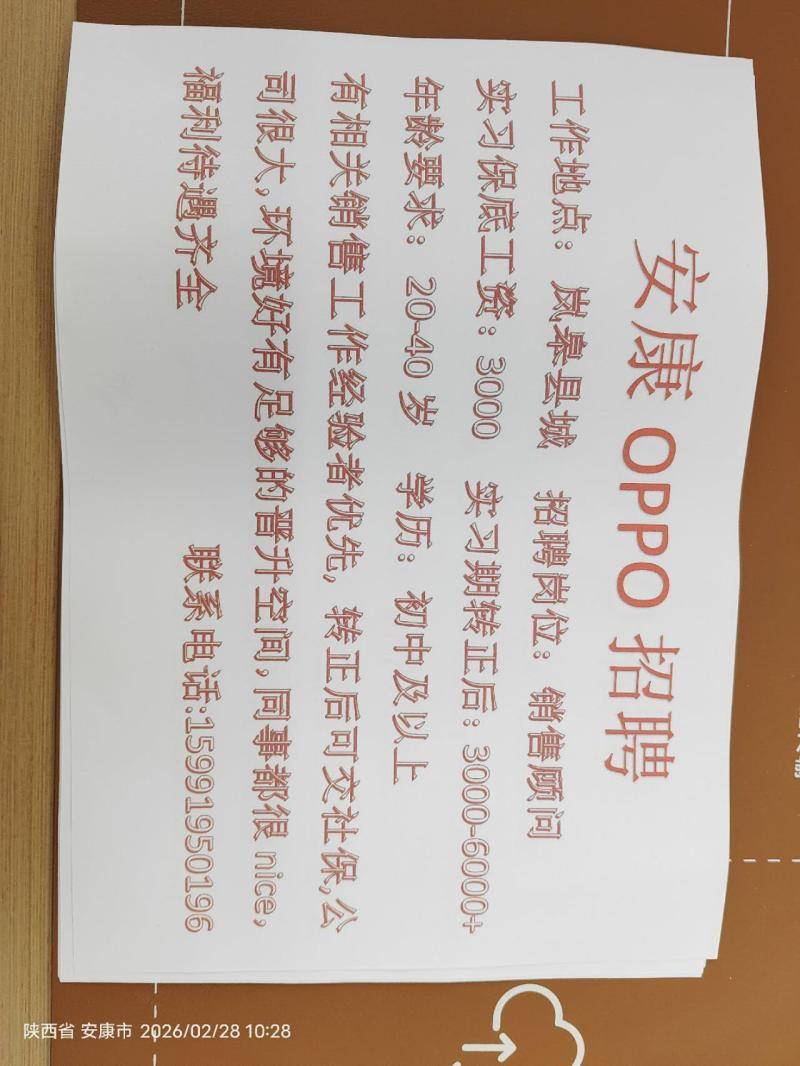 安康 OPPO 招聘
工作地点： 岚皋县城 招聘岗位：销售顾问
实习保底工资：3000 实习期转正后：3000-6000+
年龄要求： 20-40 岁 学历： 初中及以上
有相关销售工作经验者优先，转正后可交社保,公
司很大，环境好有足够的晋升空间，同事都很 nice，
福利待遇齐全
联系电话:15991950196
陕西省 安康市 2026/02/28 10:28